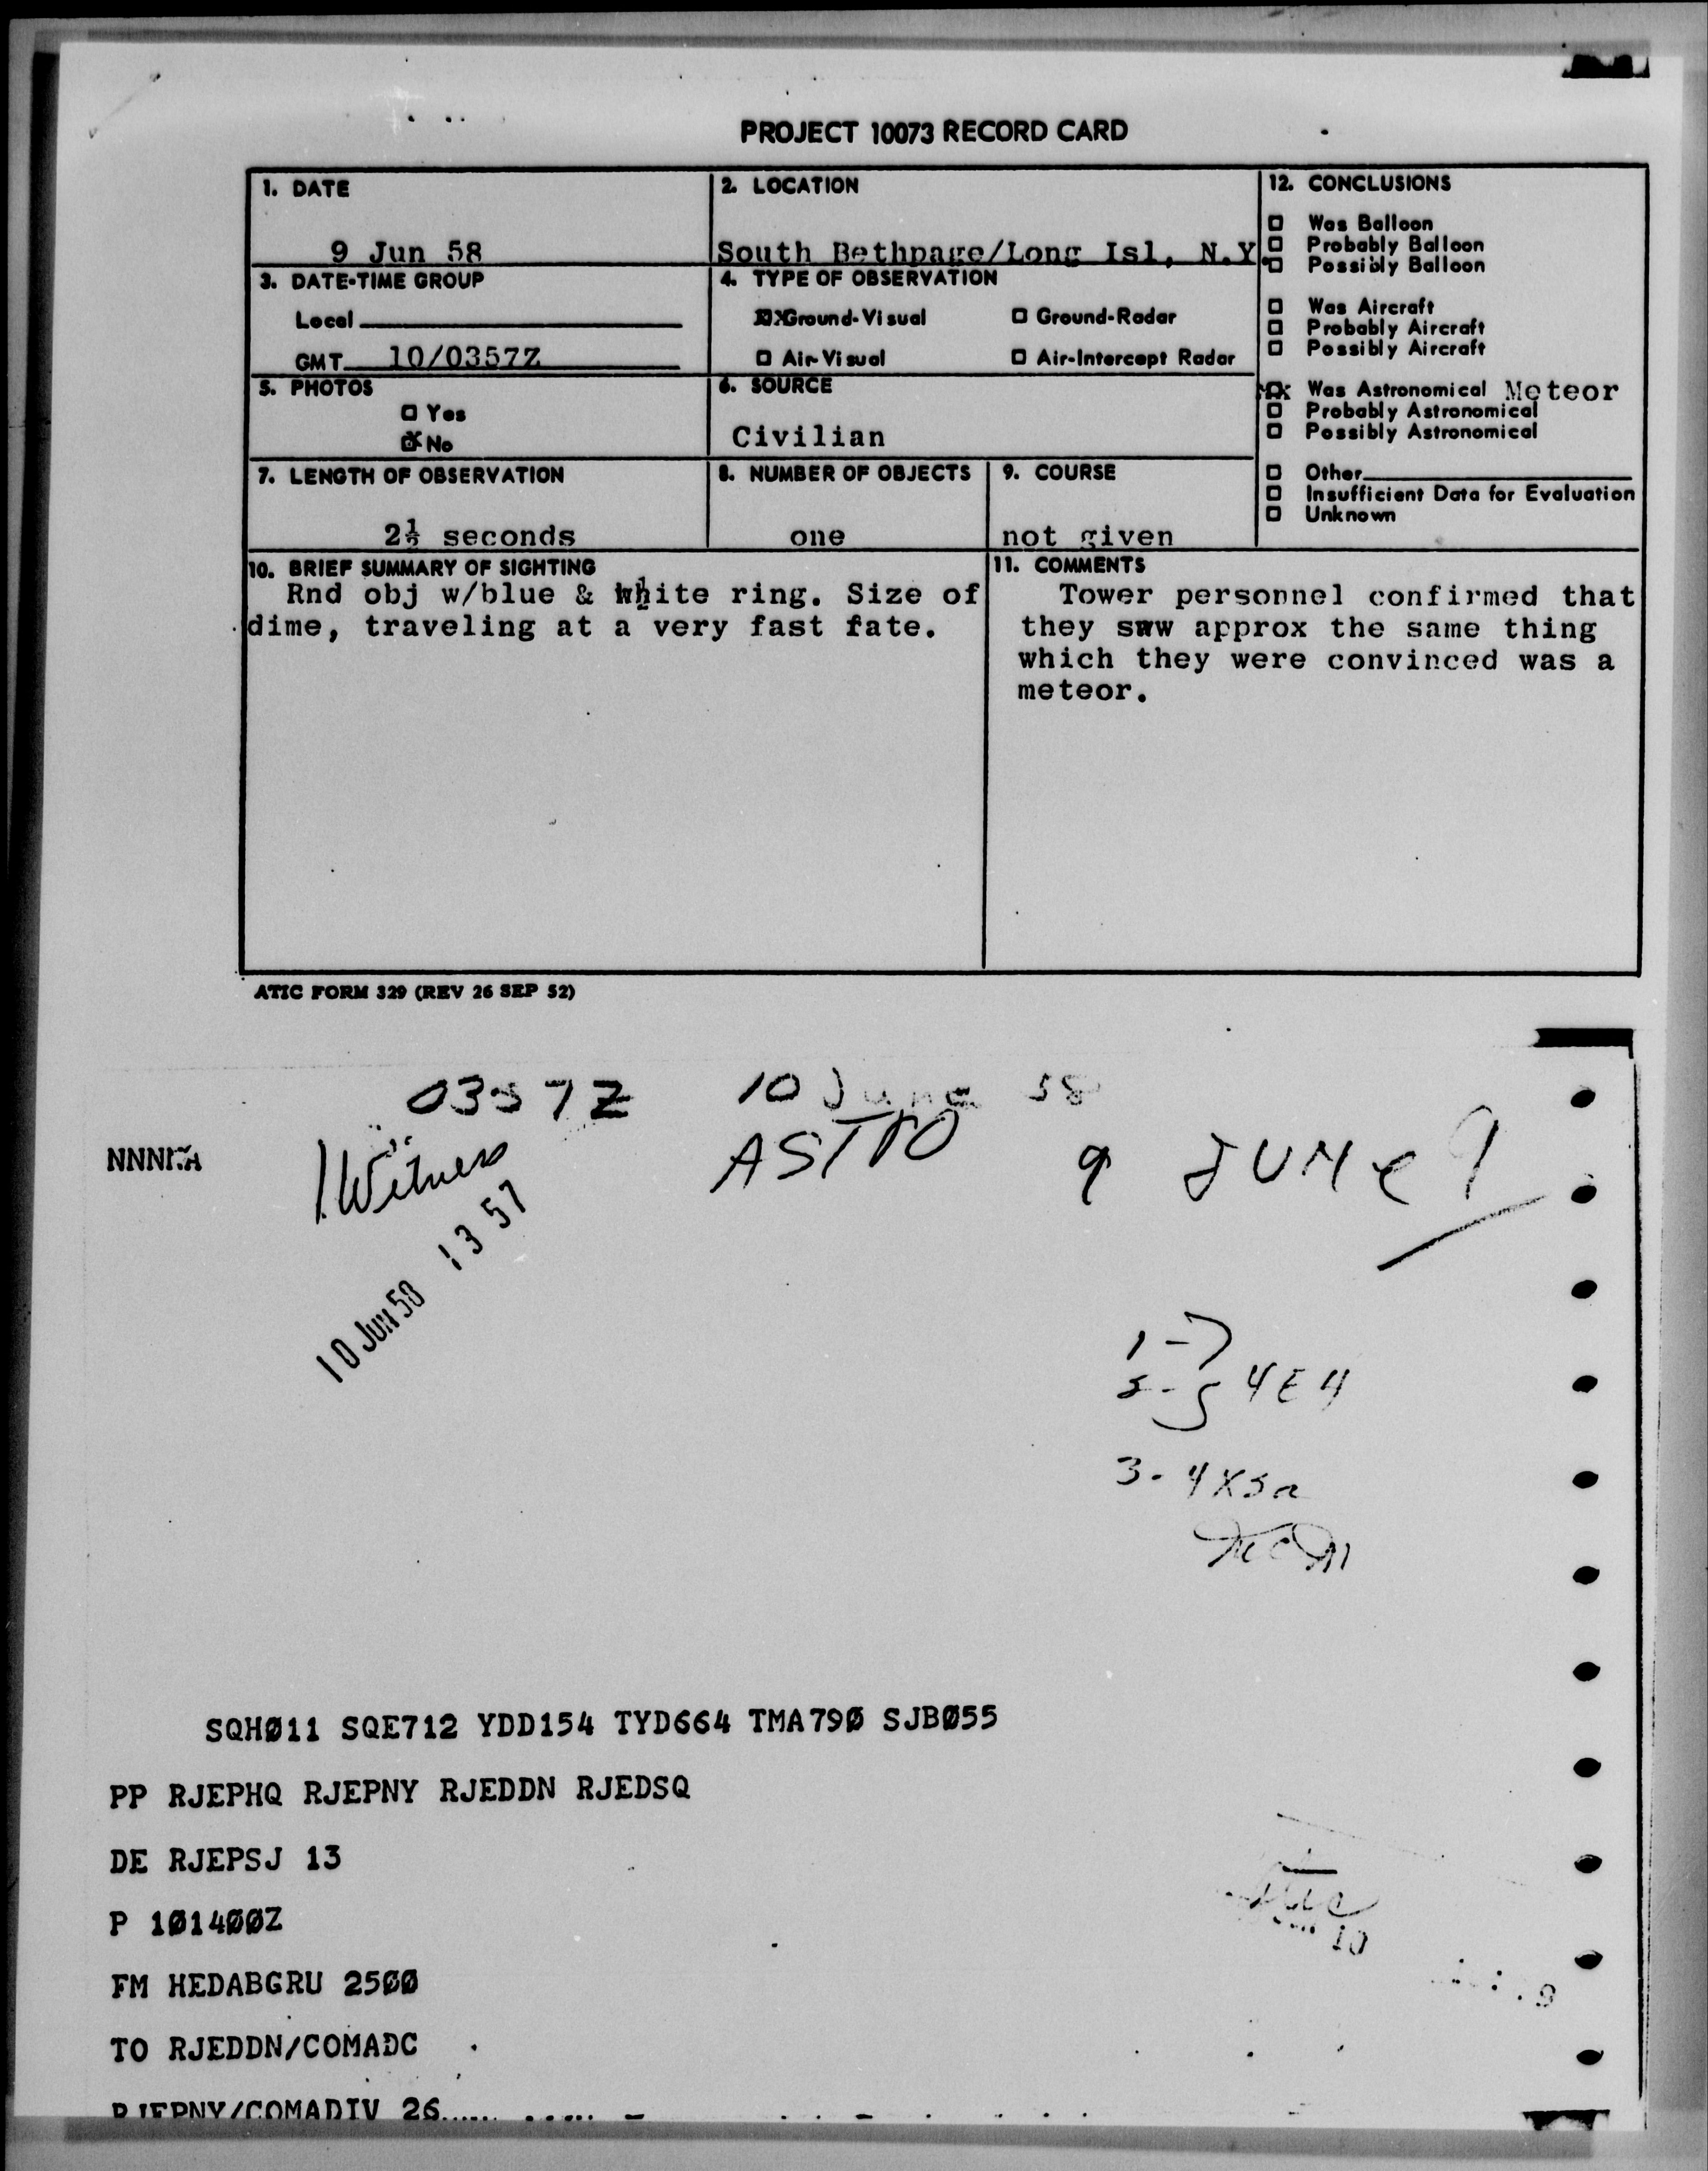 PROJECT 10073 RECORD CARD
1. DATE
9 Jun 58
2. LOCATION
South Bethpage/Long Isl, N.Y.
3. DATE-TIME GROUP
Local
GMT 10/0357Z
4. TYPE OF OBSERVATION
Ground-Visual
Ground-Radar
Air-Visual
Air-Intercept Radar
5. PHOTOS
Yes
No
6. SOURCE
Civilian
7. LENGTH OF OBSERVATION
2½ seconds
8. NUMBER OF OBJECTS
one
9. COURSE
not given
12. CONCLUSIONS
Was Balloon
Probably Balloon
Possibly Balloon
Was Aircraft
Probably Aircraft
Possibly Aircraft
Was Astronomical Meteor
Probably Astronomical
Possibly Astronomical
Other
Insufficient Data for Evaluation
Unknown
10. BRIEF SUMMARY OF SIGHTING
Rnd obj w/blue & white ring. Size of
dime, traveling at a very fast fate.
11. COMMENTS
Tower personnel confirmed that
they saw approx the same thing
which they were convinced was a
meteor.
ATIC FORM 329 (REV 26 SEP 52)
0357Z 10 June 58
1 Witness
ASTRO
9 JUNE
10 JUN 58 13 57
4E4
3-
SQHØ11 SQE712 YDD154 TYD664 TMA79Ø SJBØ55
PP RJEPHQ RJEPNY RJEDDN RJEDSQ
DE RJEPSJ 13
P 1Ø14ØØZ
FM HEDABGRU 25ØØ
TO RJEDDN/COMADC
RJEPNY/COMADIV 26